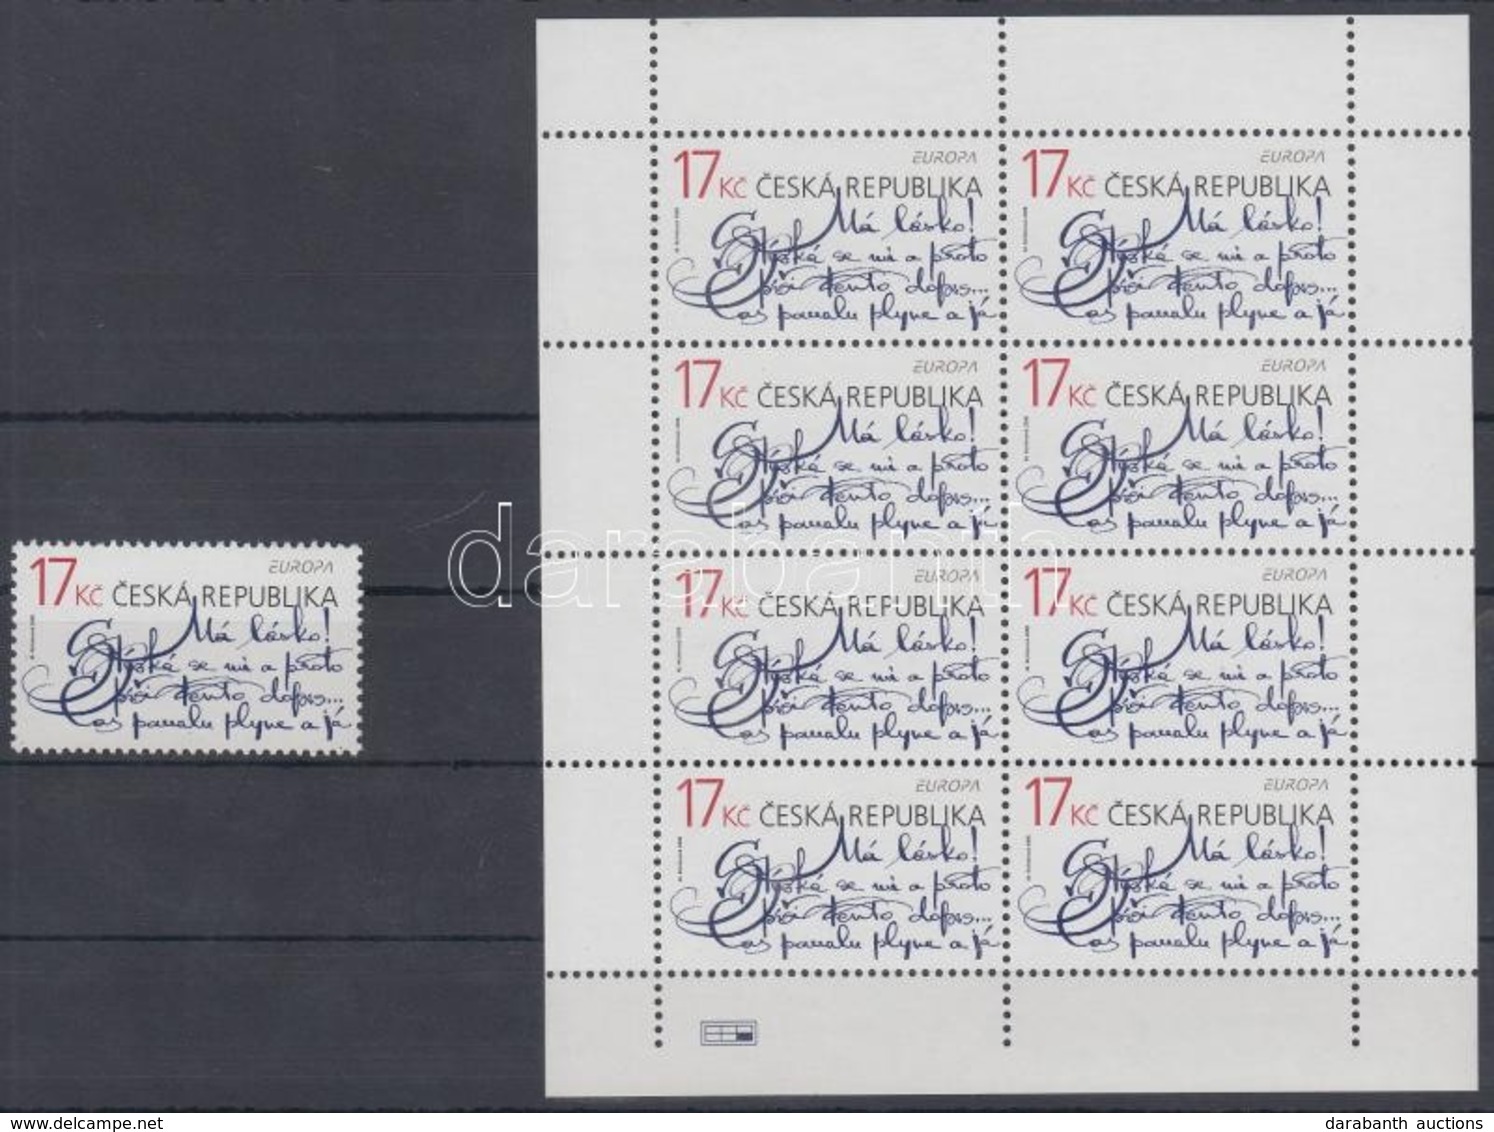 17 Kč ČESKÁ REPUBLIKA EUROPA
Má lásko!
Stýská se mi a proto
píši tento dopis...
Čas pomalu plyne a já
17 Kč ČESKÁ REPUBLIKA EUROPA
Má lásko!
Stýská se mi a proto
píši tento dopis...
Čas pomalu plyne a já
17 Kč ČESKÁ REPUBLIKA EUROPA
Má lásko!
Stýská se mi a proto
píši tento dopis...
Čas pomalu plyne a já
17 Kč ČESKÁ REPUBLIKA EUROPA
Má lásko!
Stýská se mi a proto
píši tento dopis...
Čas pomalu plyne a já
17 Kč ČESKÁ REPUBLIKA EUROPA
Má lásko!
Stýská se mi a proto
píši tento dopis...
Čas pomalu plyne a já
17 Kč ČESKÁ REPUBLIKA EUROPA
Má lásko!
Stýská se mi a proto
píši tento dopis...
Čas pomalu plyne a já
17 Kč ČESKÁ REPUBLIKA EUROPA
Má lásko!
Stýská se mi a proto
píši tento dopis...
Čas pomalu plyne a já
17 Kč ČESKÁ REPUBLIKA EUROPA
Má lásko!
Stýská se mi a proto
píši tento dopis...
Čas pomalu plyne a já
17 Kč ČESKÁ REPUBLIKA EUROPA
Má lásko!
Stýská se mi a proto
píši tento dopis...
Čas pomalu plyne a já
darabanth
delcampe.net
darabanth auctions